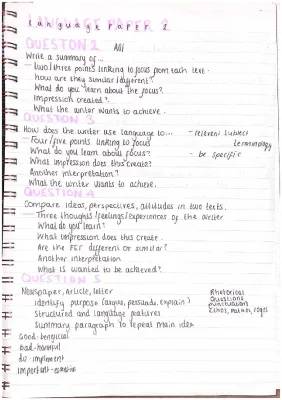 LANGUAGE PAPER 2
Language Paper 2
QUESTON 2 A01
Write a summary of...
- two/three points linking to focus from each text.
How are they similar/different?
What do you learn about the focus?
Impression created?
What the writer wants to achieve.
QUESTION 3
How does the writer use language to... - relevent subject terminology
- Four/five points linking to focus
What do you learn about focus? - be specific
What impression does this create?
Another interpretation?
What the writer wants to achieve.
QUESTION 4
Compare ideas, perspectives, attitudes in two texts.
- Three thoughts/feelings/experiences of the writer
What do you learn?
What impression does this create.
Are the FET different or similar?
Another interpretation
What is wanted to be achieved?
QUESTION 5
Newspaper, Article, letter Rhetorical
Identify purpose (argue, persuade, explain) Questions
Structured and language features punctuation
Summary paragraph to repeat main idea Ethos, pathos, logos
Good - beneficial
bad - harmful
do - implement
important - essential